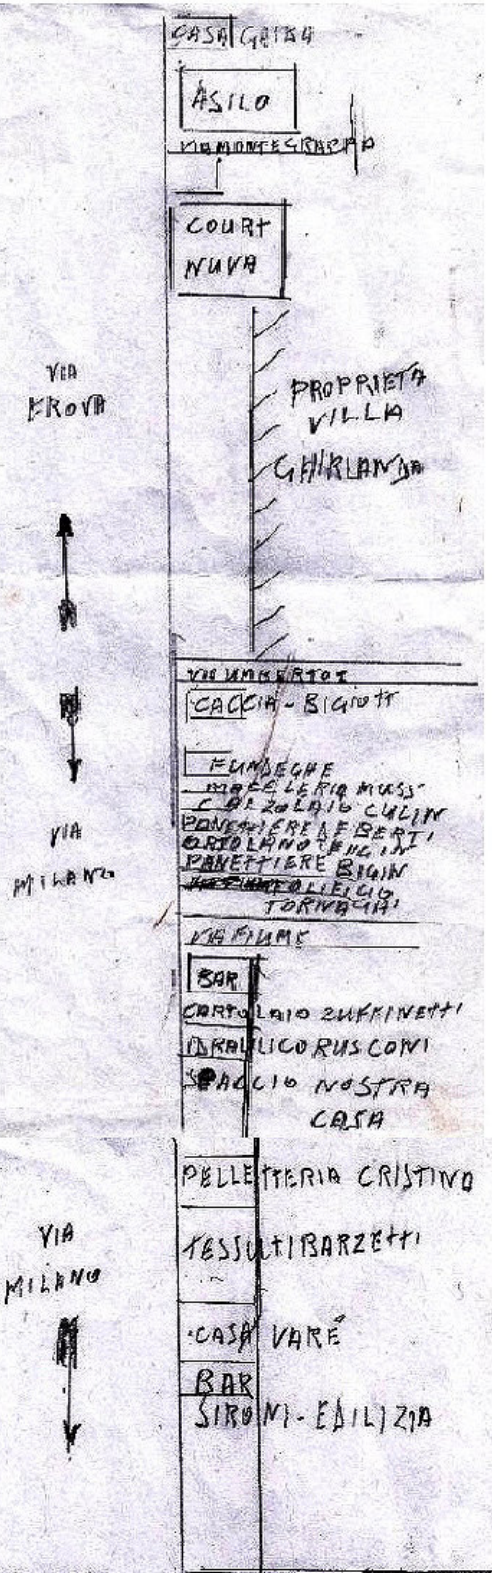 CASA GAIBA
ASILO
VIA MONTEGRAPPA
COURT
NUVA
VIA
FROVA
PROPRIETA
VILLA
GHIRLANDA
VIA UMBERTO I
CACCIA - BIGIOTT
FUNDEGHE
MACELLERIA MUSS
CALZOLAIO CULIN
PANETTIERE DE BERTI
ORTOLANO
PANETTIERE BIGIN
TORNAGHI
VIA
MILANO
VIA FIUME
BAR
CARTOLAIO ZUFFINETTI
IDRAULICO RUSCONI
SPACCIO NOSTRA
CASA
PELLETTERIA CRISTINO
VIA
MILANO
TESSUTI BARZETTI
CASA VARÉ
BAR
SIRONI - EDILIZIA